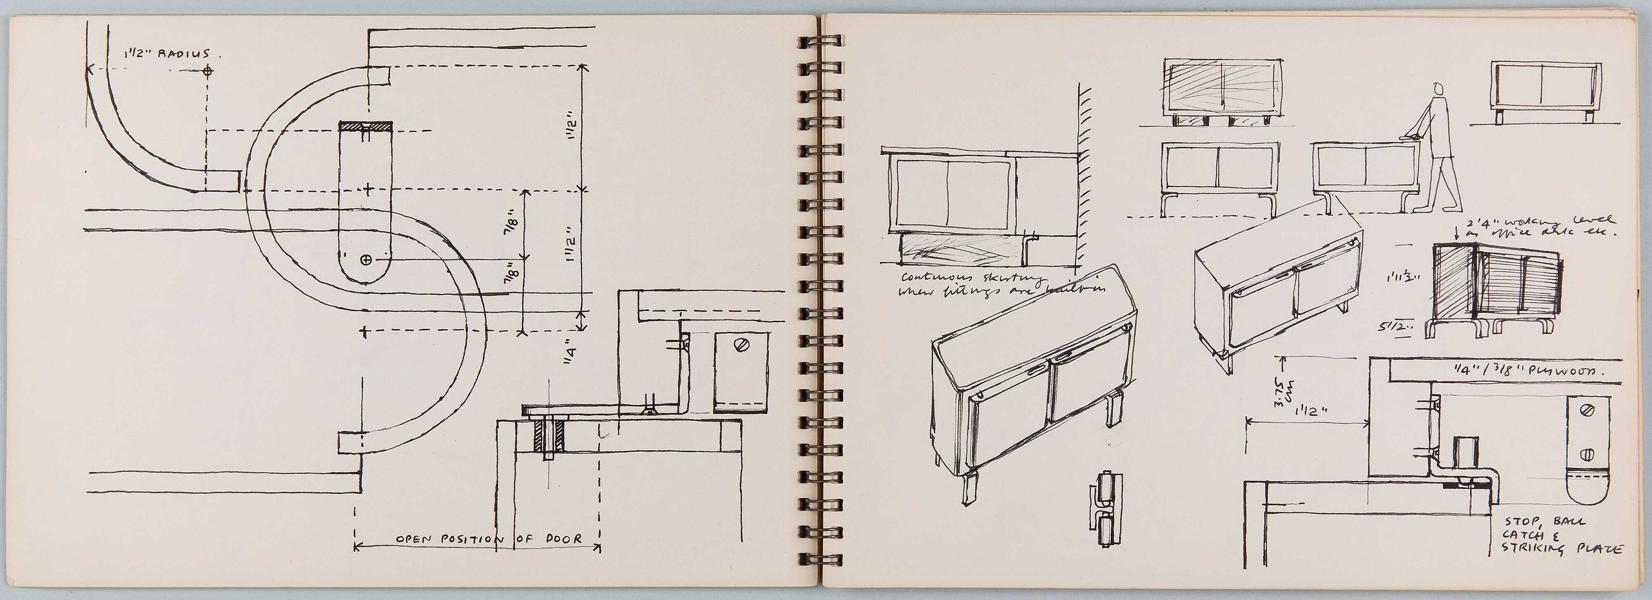 1 1/2" RADIUS.
1 1/2"
7/8"
1 1/2"
7/8"
1/4"
OPEN POSITION OF DOOR
Continuous skirting
when fittings are built-in
2'4" working level
as office desk etc.
1'11 1/2"
5 1/2"
3.75
cm
1 1/2"
1/4" / 3/8" PLYWOOD.
STOP, BALL
CATCH &
STRIKING PLATE